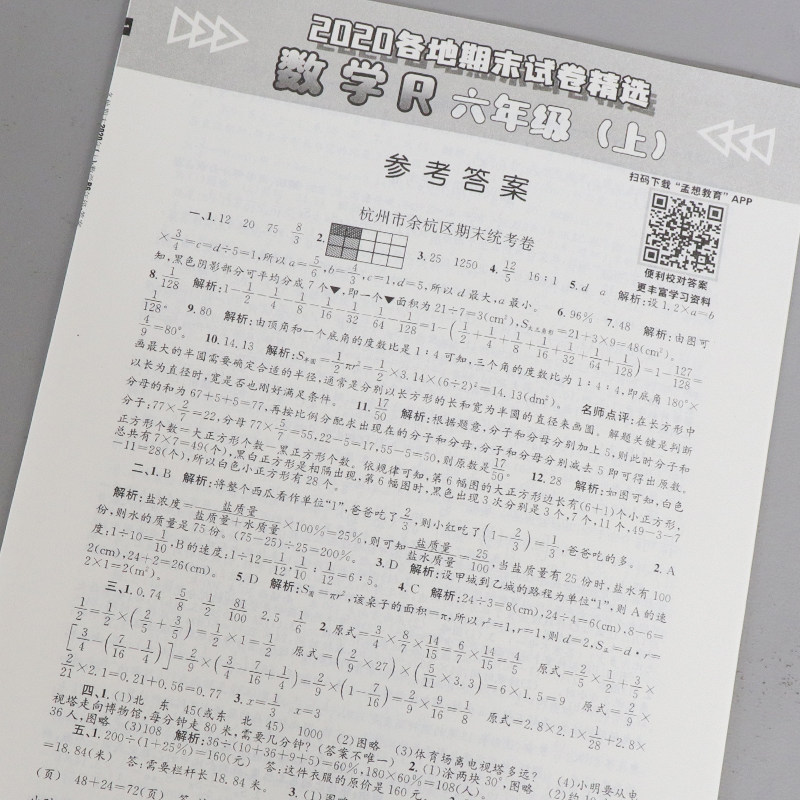 2020各地期末试卷精选
数学R 六年级（上）
参考答案
扫码下载“孟想教育”APP
便利校对答案
更丰富学习资料
杭州市余杭区期末统考卷
一、1. 12 20 75 8/3 2. 3. 25 1250 4. 12/5 16:1 5. d a 解析:设1.2×a=b
×3/4=c=d÷5=1,所以a=5/6,b=4/3,c=1,d=5,所以d最大,a最小。 6. 96% 7. 48 解析:由图可
知,黑色阴影部分可平均分成7个▼,即一个▼面积为21÷7=3(cm²),
=21+3×9=48(cm²)。
8. 1/128 解析:1-1/2-1/4-1/8-1/16-1/32-1/64-1/128=1-(1/2+1/4+1/8+1/16+1/32+1/64+1/128)=1-127/128=
1/128。 9. 80 解析:由顶角和一个底角的度数比是1:4可知,三个角的度数比为1:4:4,即底角180°×
4/9=80°。 10. 14.13 解析:S半圆=1/2πr²=1/2×3.14×(6÷2)²=14.13(dm²)。 名师点评:在长方形中
画最大的半圆需要确定合适的半径,通常是分别以长方形的长和宽为半圆的直径来画圆。解题关键是判断
以长为直径时,宽是否也刚好满足条件。 11. 17/50 解析:根据题意,分子和分母分别加上5,则此时分子和
分母的和为67+5+5=77,再按比例分配求出现在的分子和分母,分子和分母分别减去5即可得出原数。
分子:77×2/7=22,分母77×5/7=55,22-5=17,55-5=50,则原数是17/50。 12. 28 解析:如图可知,白色
正方形个数=大正方形个数-黑正方形个数。依规律可知,第6幅图的大正方形边长有(6+1)个小正方形,
总共有7×7=49(个),黑白正方形是相隔出现,第6幅图时,黑色出现3次分别是3个,7个,11个,49-3-7
-11=28(个),所以白色小正方形有28个。
二、1. B 解析:将整个西瓜看作单位“1”,爸爸吃了2/3,则小红吃了(1-2/3)=1/3,爸爸吃的多。 2. A
解析:盐浓度=盐质量/盐质量+水质量×100%=25%,则可知盐质量/盐水质量=25/100,当盐质量有25份时,盐水有100
份,则水的质量是75份。(75-25)÷25=200%。 3. D 解析:设甲城到乙城的路程为单位“1”,则A的速
度:1÷10=1/10,B的速度:1÷12=1/12,1/10:1/12=6:5。 4. C 解析:24÷3=8(cm),24÷4=6(cm),8-6=
2(cm),24+2=26(cm)。 5. D 解析:S圆=πr²,该桌子的面积=π,所以r²=1,r=1,则d=2,
=d·r=
2×1=2(m²)。
三、1. 0.74 5/8 1/2 81/100 2.5 1/6 2. 原式=3/4×8/7×14/15=6/7×14/15=4/5 原式=2/5×1/2+3/5×
1/2=1/2×(2/5+3/5)=1/2×1=1/2 原式=(2/9×27)×(5/11×3.3)=6×1.5=9 原式=2/9×
[3/4-(7/16-1/4)]=2/9×(3/4-7/16+1/4)=2/9×(1-7/16)=2/9×9/16=1/8 原式=2.8×2.1×1/28+2.8×
2/21×2.1=0.21+0.56=0.77 3. x=1/3 x=3
四、1. (1)北 东 45(或东 北 45) 1000 (2)图略 (3)体育场离电视塔多远? (4)小明要从电
视塔走向博物馆,每分钟走80米,需要几分钟?(答案不唯一) 2. (1)涂两块30°,图略
36人,图略 (3)108 解析:36÷(10+36+9+5)=60%,180×60%=108(人)。
五、1. 200÷(1+25%)=160(元) 答:这件衣服的原价是160元
=18.84(米) 答:需要栏杆长18.84米。 3. (1)图略
(页) 48+24=72(页)